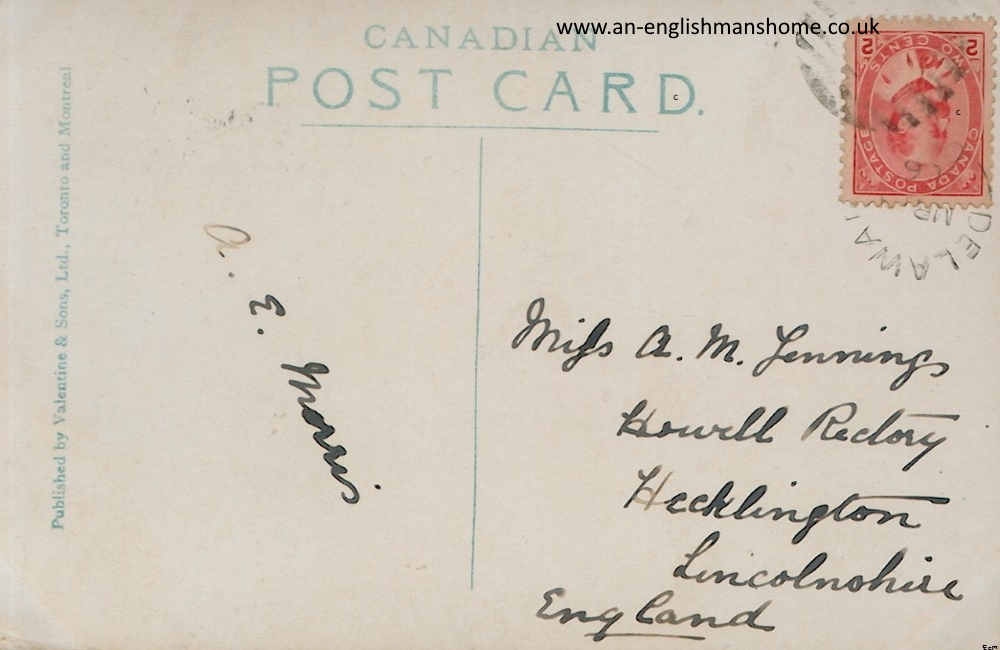 www.an-englishmanshome.co.uk
CANADIAN
POST CARD.
Published by Valentine & Sons, Ltd., Toronto and Montreal
2 2
TWO CENTS
CANADA POSTAGE
DELAWA
MR
6
A. E. Morris
Miss A. M. Jennings
Howell Rectory
Hecklington
Lincolnshire
England